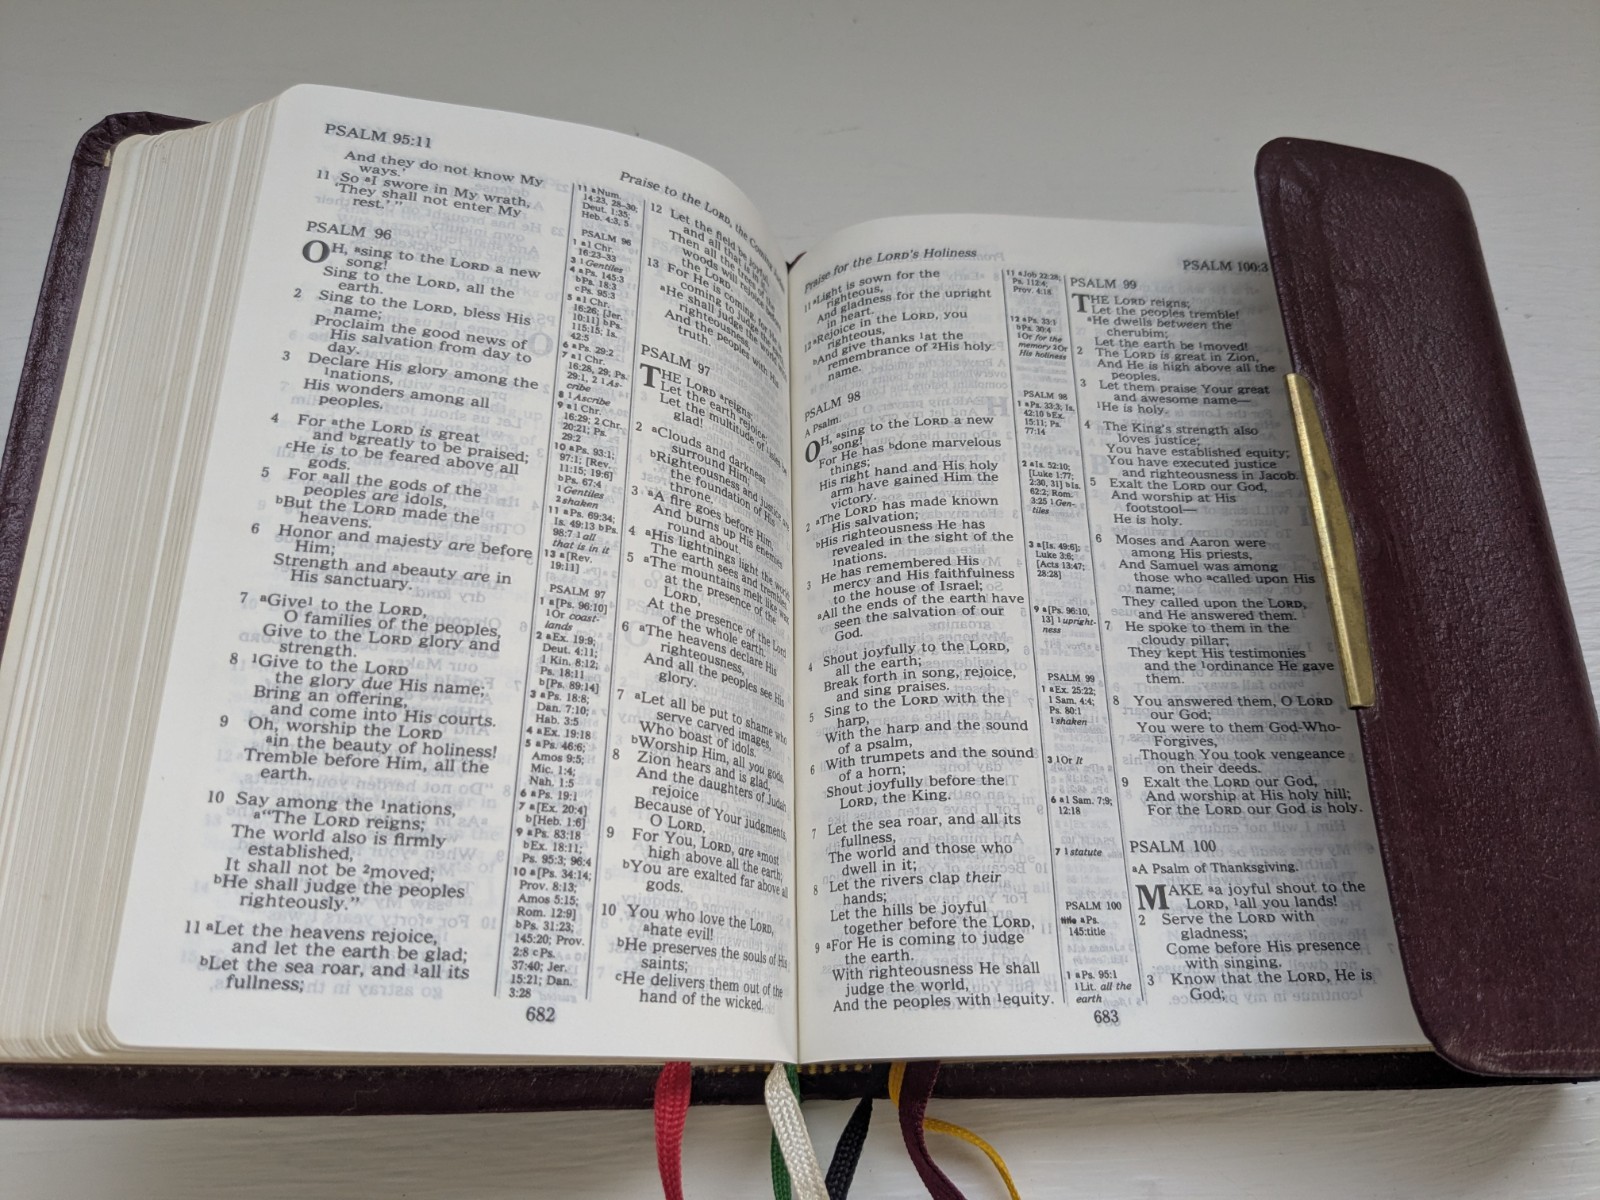 PSALM 95:11
And they do not know My
ways.'
11 So aI swore in My wrath,
'They shall not enter My
rest.' "
PSALM 96
OH, asing to the LORD a new
song!
Sing to the LORD, all the
earth.
2 Sing to the LORD, bless His
name;
Proclaim the good news of
His salvation from day to
day.
3 Declare His glory among the
1nations,
His wonders among all
peoples.
4 For athe LORD is great
and bgreatly to be praised;
cHe is to be feared above all
gods.
5 For aall the gods of the
peoples are idols,
bBut the LORD made the
heavens.
6 Honor and majesty are before
Him;
Strength and abeauty are in
His sanctuary.
7 aGive1 to the LORD,
O families of the peoples,
Give to the LORD glory and
strength.
8 1Give to the LORD
the glory due His name;
Bring an offering,
and come into His courts.
9 Oh, worship the LORD
ain the beauty of holiness!
Tremble before Him, all the
earth.
10 Say among the 1nations,
a"The LORD reigns;
The world also is firmly
established,
It shall not be 2moved;
bHe shall judge the peoples
righteously."
11 aLet the heavens rejoice,
and let the earth be glad;
bLet the sea roar, and 1all its
fullness;
11 aNum.
14:23, 28–30;
Deut. 1:35;
Heb. 4:3, 5
PSALM 96
1 a1 Chr.
16:23–33
3 1Gentiles
4 aPs. 145:3
bPs. 18:3
cPs. 95:3
5 a1 Chr.
16:26; [Jer.
10:11] bPs.
115:15; Is.
42:5
6 aPs. 29:2
7 a1 Chr.
16:28, 29; Ps.
29:1, 2 1As-
cribe
8 1Ascribe
9 a1 Chr.
16:29; 2 Chr.
20:21; Ps.
29:2
10 aPs. 93:1;
97:1; [Rev.
11:15; 19:6]
bPs. 67:4
1Gentiles
2shaken
11 aPs. 69:34;
Is. 49:13 bPs.
98:7 1all
that is in it
13 a[Rev.
19:11]
PSALM 97
1 a[Ps. 96:10]
1Or coast-
lands
2 aEx. 19:9;
Deut. 4:11;
1 Kin. 8:12;
Ps. 18:11
b[Ps. 89:14]
3 aPs. 18:8;
Dan. 7:10;
Hab. 3:5
4 aEx. 19:18
5 aPs. 46:6;
Amos 9:5;
Mic. 1:4;
Nah. 1:5
6 aPs. 19:1
7 a[Ex. 20:4]
b[Heb. 1:6]
9 aPs. 83:18
bEx. 18:11;
Ps. 95:3; 96:4
10 a[Ps. 34:14;
Prov. 8:13;
Amos 5:15;
Rom. 12:9]
bPs. 31:23;
145:20; Prov.
2:8 cPs.
37:40; Jer.
15:21; Dan.
3:28
682
Praise to the LORD, the Coming
12 Let the field be joyful,
and all that is in it.
Then all the trees of the
woods will rejoice
the LORD.
13 For He is coming, for He is
coming to judge the earth.
aHe shall judge the world
righteousness,
And the peoples with His
truth.
PSALM 97
THE LORD areigns;
Let the earth rejoice;
Let the multitude of isles be
glad!
2 aClouds and darkness
surround Him;
bRighteousness and justice are
the foundation of His
throne.
3 aA fire goes before Him,
And burns up His enemies
round about.
4 aHis lightnings light the world;
The earth sees and trembles.
5 aThe mountains melt like wax
at the presence of the
LORD,
At the presence of the Lord
of the whole earth.
6 aThe heavens declare His
righteousness,
And all the peoples see His
glory.
7 aLet all be put to shame who
serve carved images,
Who boast of idols.
bWorship Him, all you gods.
8 Zion hears and is glad,
And the daughters of Judah
rejoice
Because of Your judgments,
O LORD.
9 For You, LORD, are amost
high above all the earth;
bYou are exalted far above all
gods.
10 You who love the LORD,
ahate evil!
bHe preserves the souls of His
saints;
cHe delivers them out of the
hand of the wicked.
Praise for the LORD's Holiness
11 aLight is sown for the
righteous,
And gladness for the upright
in heart.
12 aRejoice in the LORD, you
righteous,
bAnd give thanks 1at the
remembrance of 2His holy
name.
PSALM 98
A Psalm.
OH, asing to the LORD a new
song!
For He has bdone marvelous
things;
His right hand and His holy
arm have gained Him the
victory.
2 aThe LORD has made known
His salvation;
bHis righteousness He has
revealed in the sight of the
1nations.
3 He has remembered His
mercy and His faithfulness
to the house of Israel;
aAll the ends of the earth have
seen the salvation of our
God.
4 Shout joyfully to the LORD,
all the earth;
Break forth in song, rejoice,
and sing praises.
5 Sing to the LORD with the
harp,
With the harp and the sound
of a psalm,
6 With trumpets and the sound
of a horn;
Shout joyfully before the
LORD, the King.
7 Let the sea roar, and all its
fullness,
The world and those who
dwell in it;
8 Let the rivers clap their
hands;
Let the hills be joyful
together before the LORD,
9 aFor He is coming to judge
the earth.
With righteousness He shall
judge the world,
And the peoples with 1equity.
11 aJob 22:28;
Ps. 112:4;
Prov. 4:18
12 aPs. 33:1
bPs. 30:4
1Or for the
memory 2Or
His holiness
PSALM 98
1 aPs. 33:3; Is.
42:10 bEx.
15:11; Ps.
77:14
2 aIs. 52:10;
[Luke 1:77;
2:30, 31] bIs.
62:2; Rom.
3:25 1Gen-
tiles
3 a[Is. 49:6];
Luke 3:6;
[Acts 13:47;
28:28]
9 a[Ps. 96:10,
13] 1upright-
ness
PSALM 99
1 aEx. 25:22;
1 Sam. 4:4;
Ps. 80:1
1shaken
3 1Or It
6 a1 Sam. 7:9;
12:18
7 1statute
PSALM 100
title aPs.
145:title
1 aPs. 95:1
1Lit. all the
earth
683
PSALM 100:3
PSALM 99
THE LORD reigns;
Let the peoples tremble!
aHe dwells between the
cherubim;
Let the earth be 1moved!
2 The LORD is great in Zion,
And He is high above all the
peoples.
3 Let them praise Your great
and awesome name—
1He is holy.
4 The King's strength also
loves justice;
You have established equity;
You have executed justice
and righteousness in Jacob.
5 Exalt the LORD our God,
And worship at His
footstool—
He is holy.
6 Moses and Aaron were
among His priests,
And Samuel was among
those who acalled upon His
name;
They called upon the LORD,
and He answered them.
7 He spoke to them in the
cloudy pillar;
They kept His testimonies
and the 1ordinance He gave
them.
8 You answered them, O LORD
our God;
You were to them God-Who-
Forgives,
Though You took vengeance
on their deeds.
9 Exalt the LORD our God,
And worship at His holy hill;
For the LORD our God is holy.
PSALM 100
aA Psalm of Thanksgiving.
MAKE aa joyful shout to the
LORD, 1all you lands!
2 Serve the LORD with
gladness;
Come before His presence
with singing.
3 Know that the LORD, He is
God;